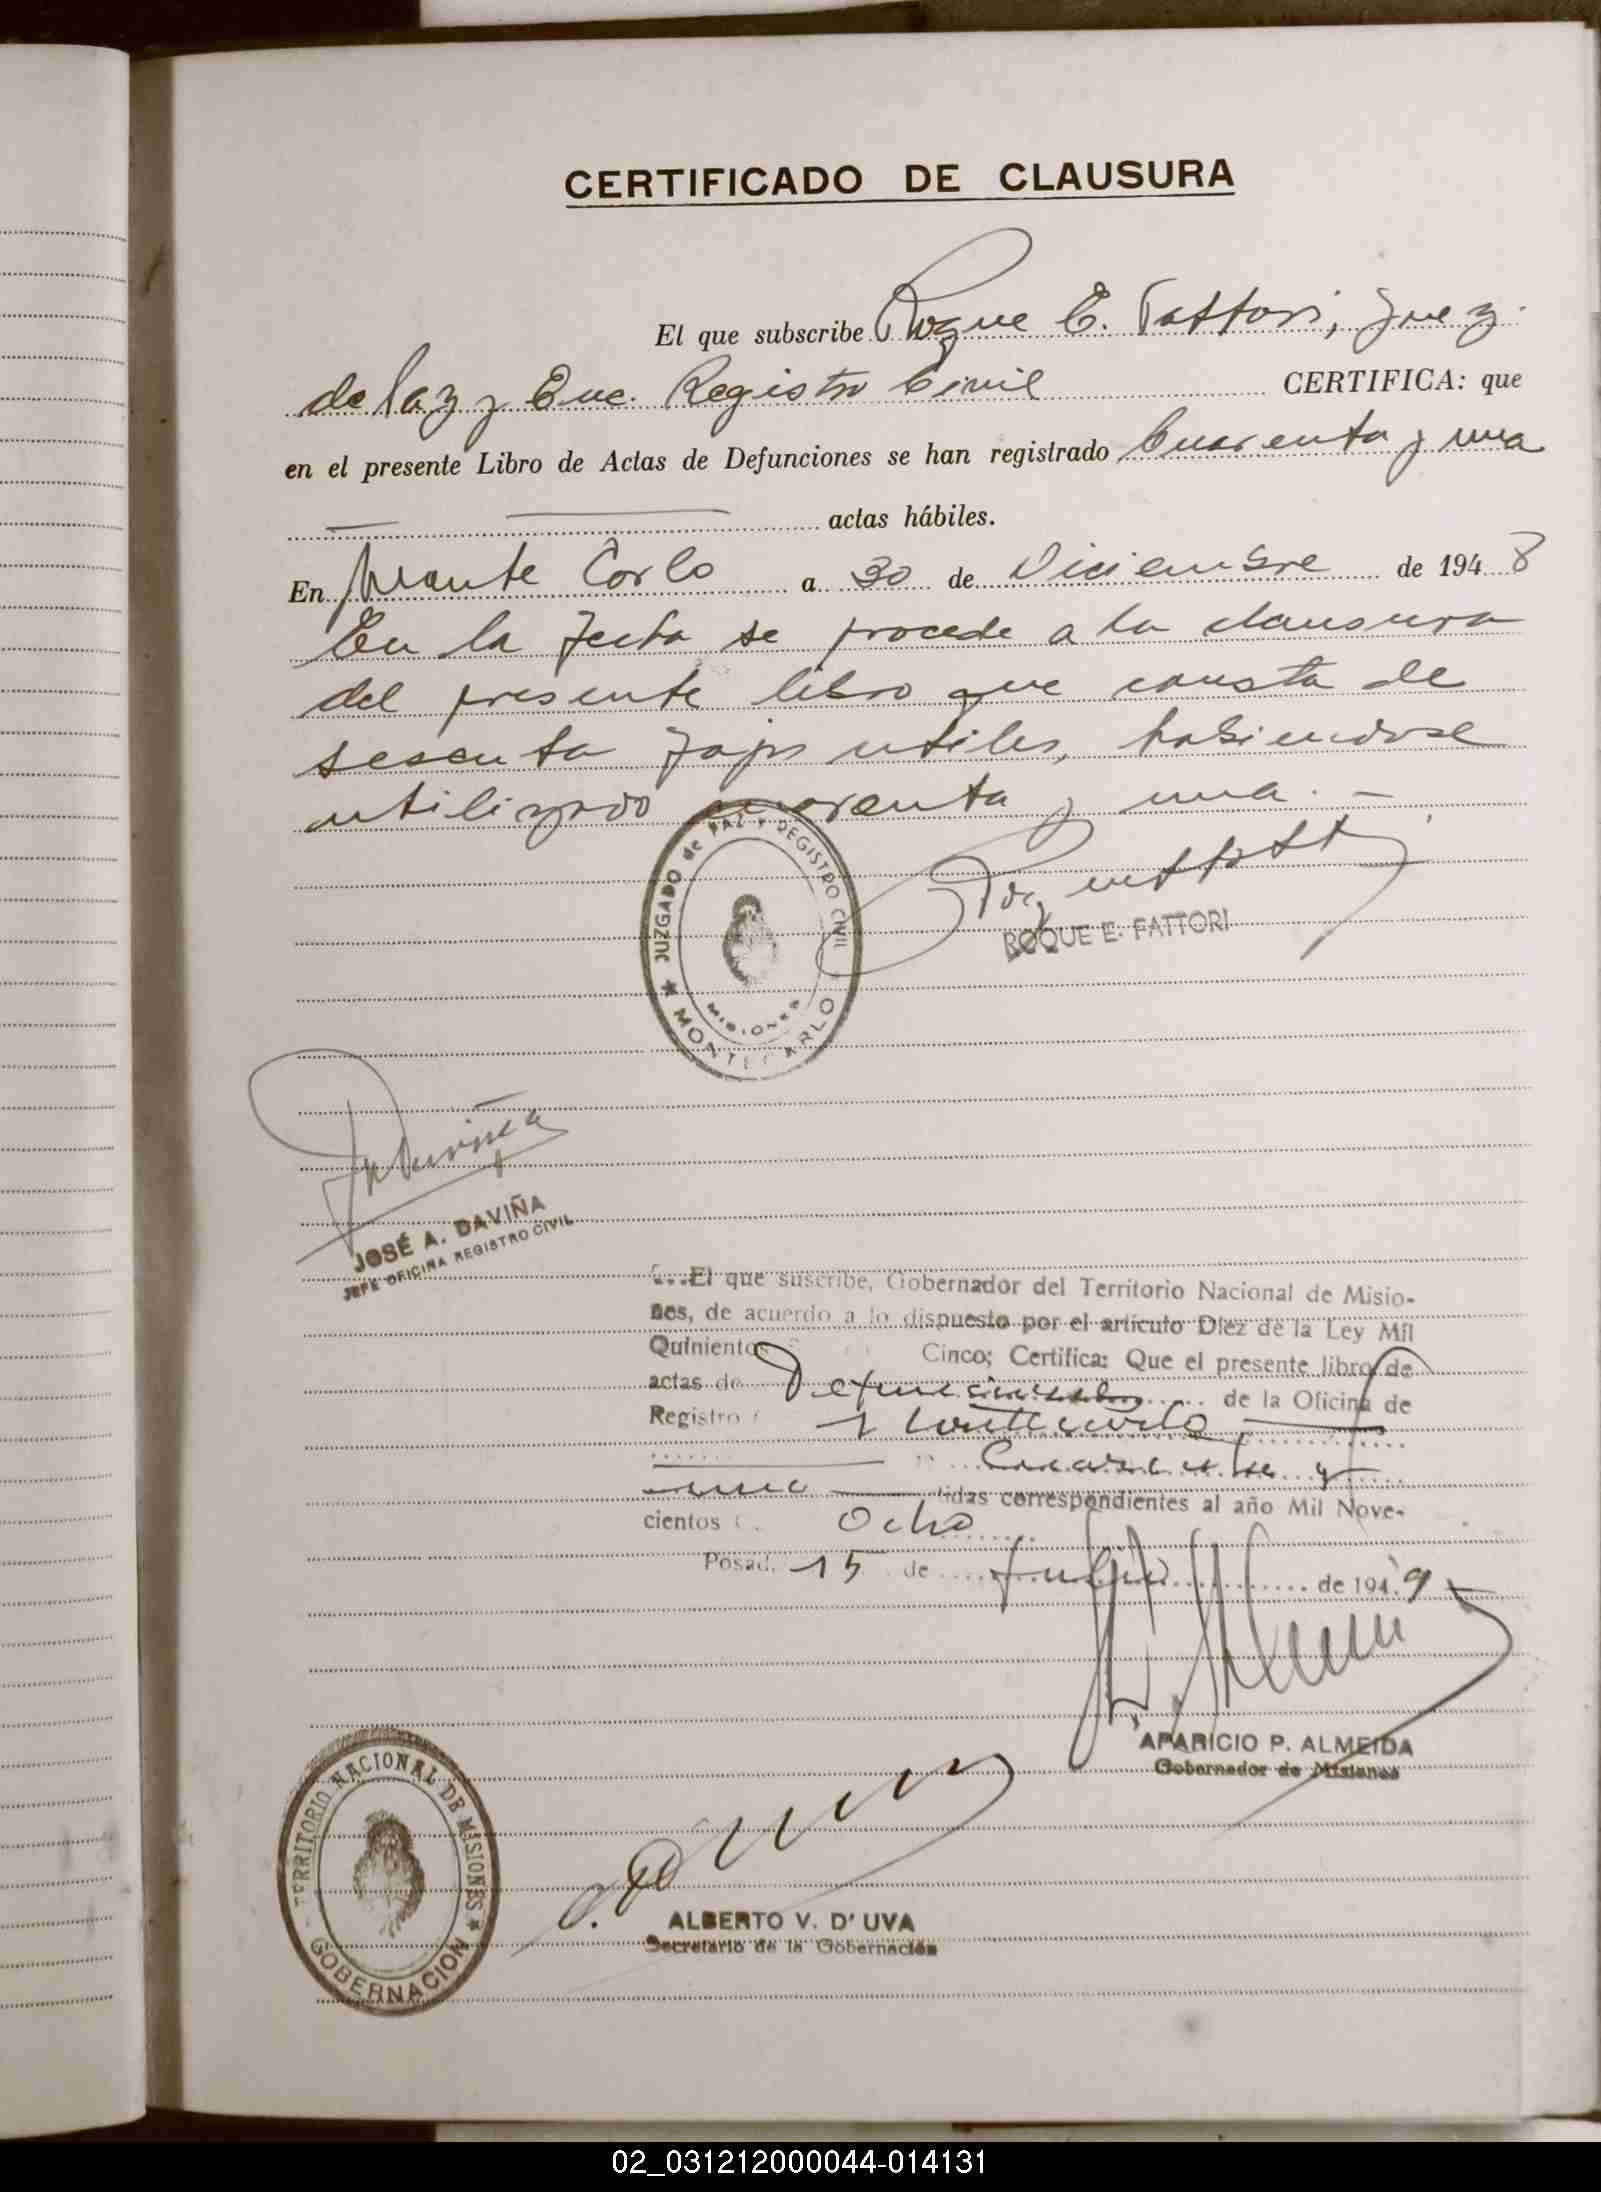 CERTIFICADO DE CLAUSURA
El que subscribe Roque E. Fattori, Juez
de Paz y Enc. Registro Civil CERTIFICA: que
en el presente Libro de Actas de Defunciones se han registrado Cuarenta y una
actas hábiles.
En Monte Carlo a 30 de Diciembre de 1948
En la fecha se procede a la clausura
del presente libro que consta de
sesenta fojas utiles, habiendose
utilizado cuarenta y una.-
JUZGADO de PAZ Y REGISTRO CIVIL
MISIONES
MONTECARLO
ROQUE E. FATTORI
JOSÉ A. DAVIÑA
JEFE OFICINA REGISTRO CIVIL
El que suscribe, Gobernador del Territorio Nacional de Misio-
nes, de acuerdo a lo dispuesto por el artículo Diez de la Ley Mil
Quinientos Cinco; Certifica: Que el presente libro de
actas de Defunciones de la Oficina de
Registro Montecarlo
Cuarenta y
una tidas correspondientes al año Mil Nove-
cientos Ocho
Posad. 15 de de 1949
APARICIO P. ALMEIDA
Gobernador de Misiones
TERRITORIO NACIONAL DE MISIONES
GOBERNACION
ALBERTO V. D' UVA
Secretario de la Gobernación
02_031212000044-014131